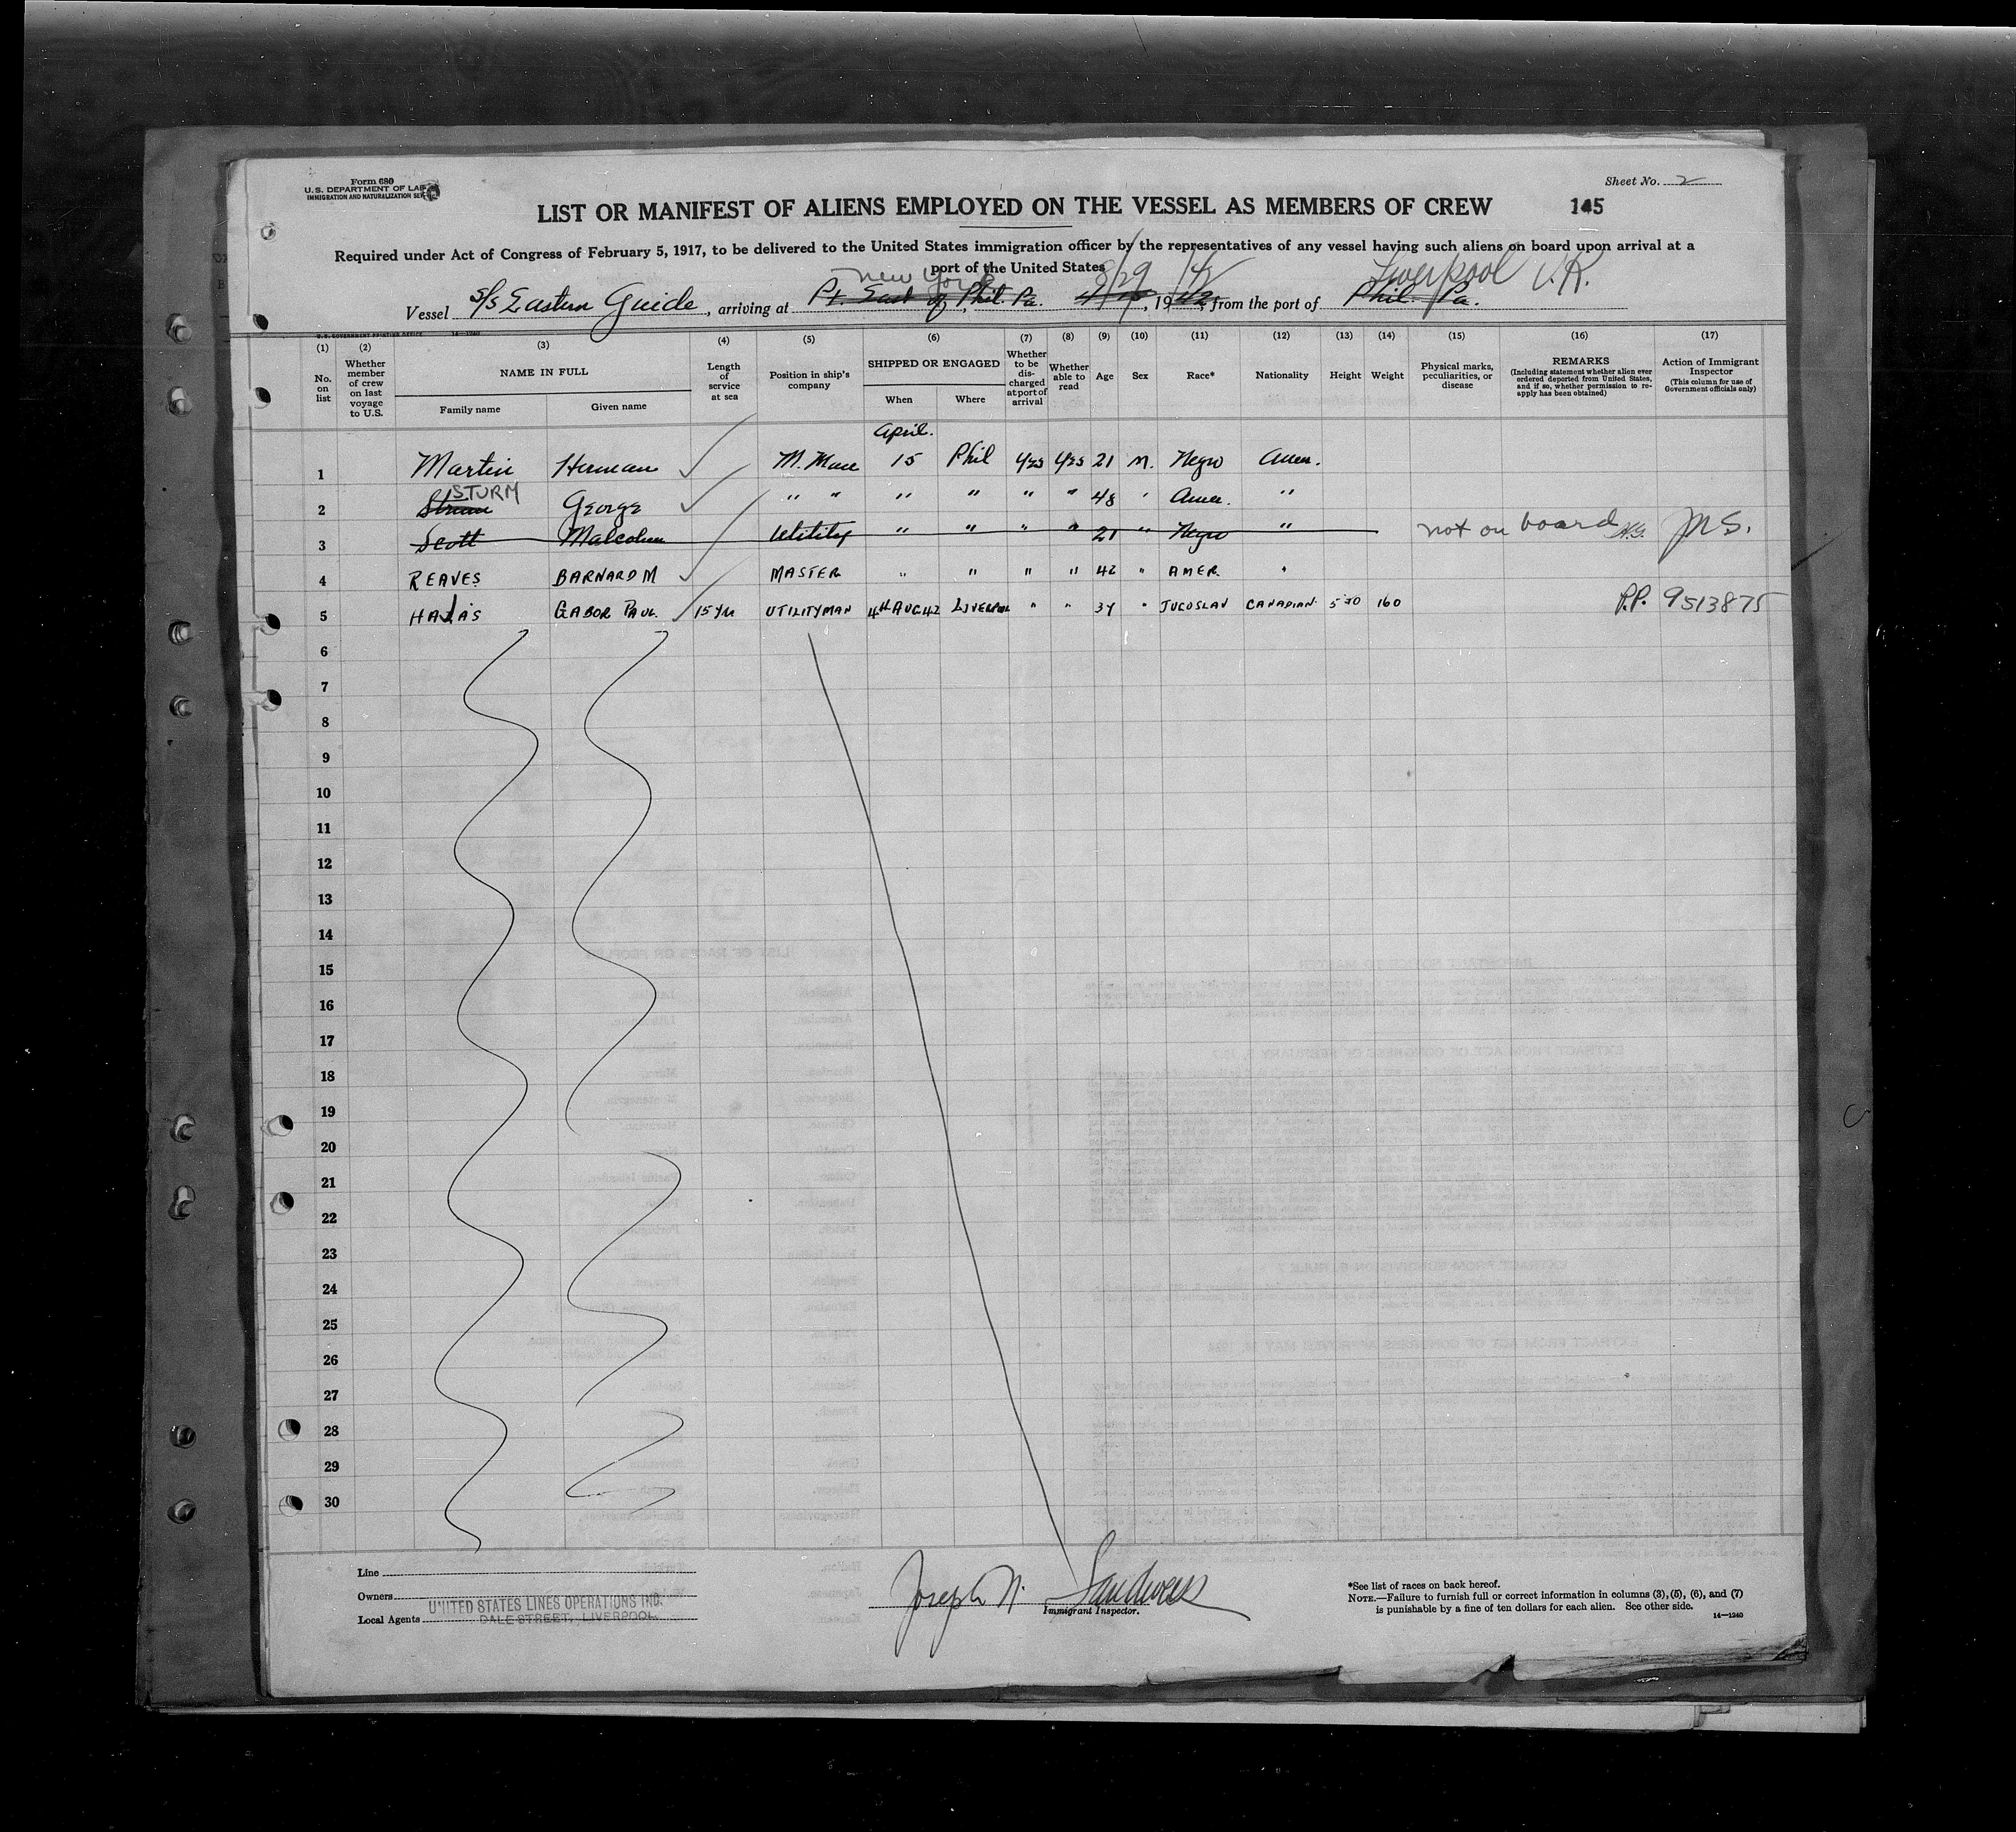 Form 680
U.S. DEPARTMENT OF LAB
IMMIGRATION AND NATURALIZATION SE
Sheet No. 2
LIST OR MANIFEST OF ALIENS EMPLOYED ON THE VESSEL AS MEMBERS OF CREW 145
Required under Act of Congress of February 5, 1917, to be delivered to the United States immigration officer by the representatives of any vessel having such aliens on board upon arrival at a
port of the United States
New York 8/29/42 Liverpool U.K.
Vessel S/S Eastern Guide, arriving at Pt. East of, Phil. Pa. , 1942, from the port of Phil. Pa.
U.S. GOVERNMENT PRINTING OFFICE 14—1240
(1) (2) (3) (4) (5) (6) (7) (8) (9) (10) (11) (12) (13) (14) (15) (16) (17)
No. on list
Whether member of crew on last voyage to U.S.
NAME IN FULL
Family name
Given name
Length of service at sea
Position in ship's company
SHIPPED OR ENGAGED
When
Where
Whether to be discharged at port of arrival
Whether able to read
Age
Sex
Race*
Nationality
Height
Weight
Physical marks, peculiarities, or disease
REMARKS
(Including statement whether alien ever ordered deported from United States, and if so, whether permission to reapply has been obtained)
Action of Immigrant Inspector
(This column for use of Government officials only)
April.
1 Martin Herman M. Man 15 Phil yes yes 21 M. Negro Amer.
STURM
2 George " " " " " " 48 " Amer. "
3 Scott Malcolm Utility " " " " 21 " Negro " not on board
4 REAVES BARNARD M MASTER " " " " 42 " AMER. "
5 GABOR PAUL 15 YRS UTILITYMAN 4th AUG 42 LIVERPOOL " " " JUGOSLAV CANADIAN 160 P.P. 9513875
6
7
8
9
10
11
12
13
14
15
16
17
18
19
20
21
22
23
24
25
26
27
28
29
30
Line
Owners
UNITED STATES LINES OPERATIONS INC.
Local Agents DALE STREET, LIVERPOOL.
Joseph N. Sandweis
Immigrant Inspector.
*See list of races on back hereof.
NOTE.—Failure to furnish full or correct information in columns (3), (5), (6), and (7)
is punishable by a fine of ten dollars for each alien. See other side.
14—1240